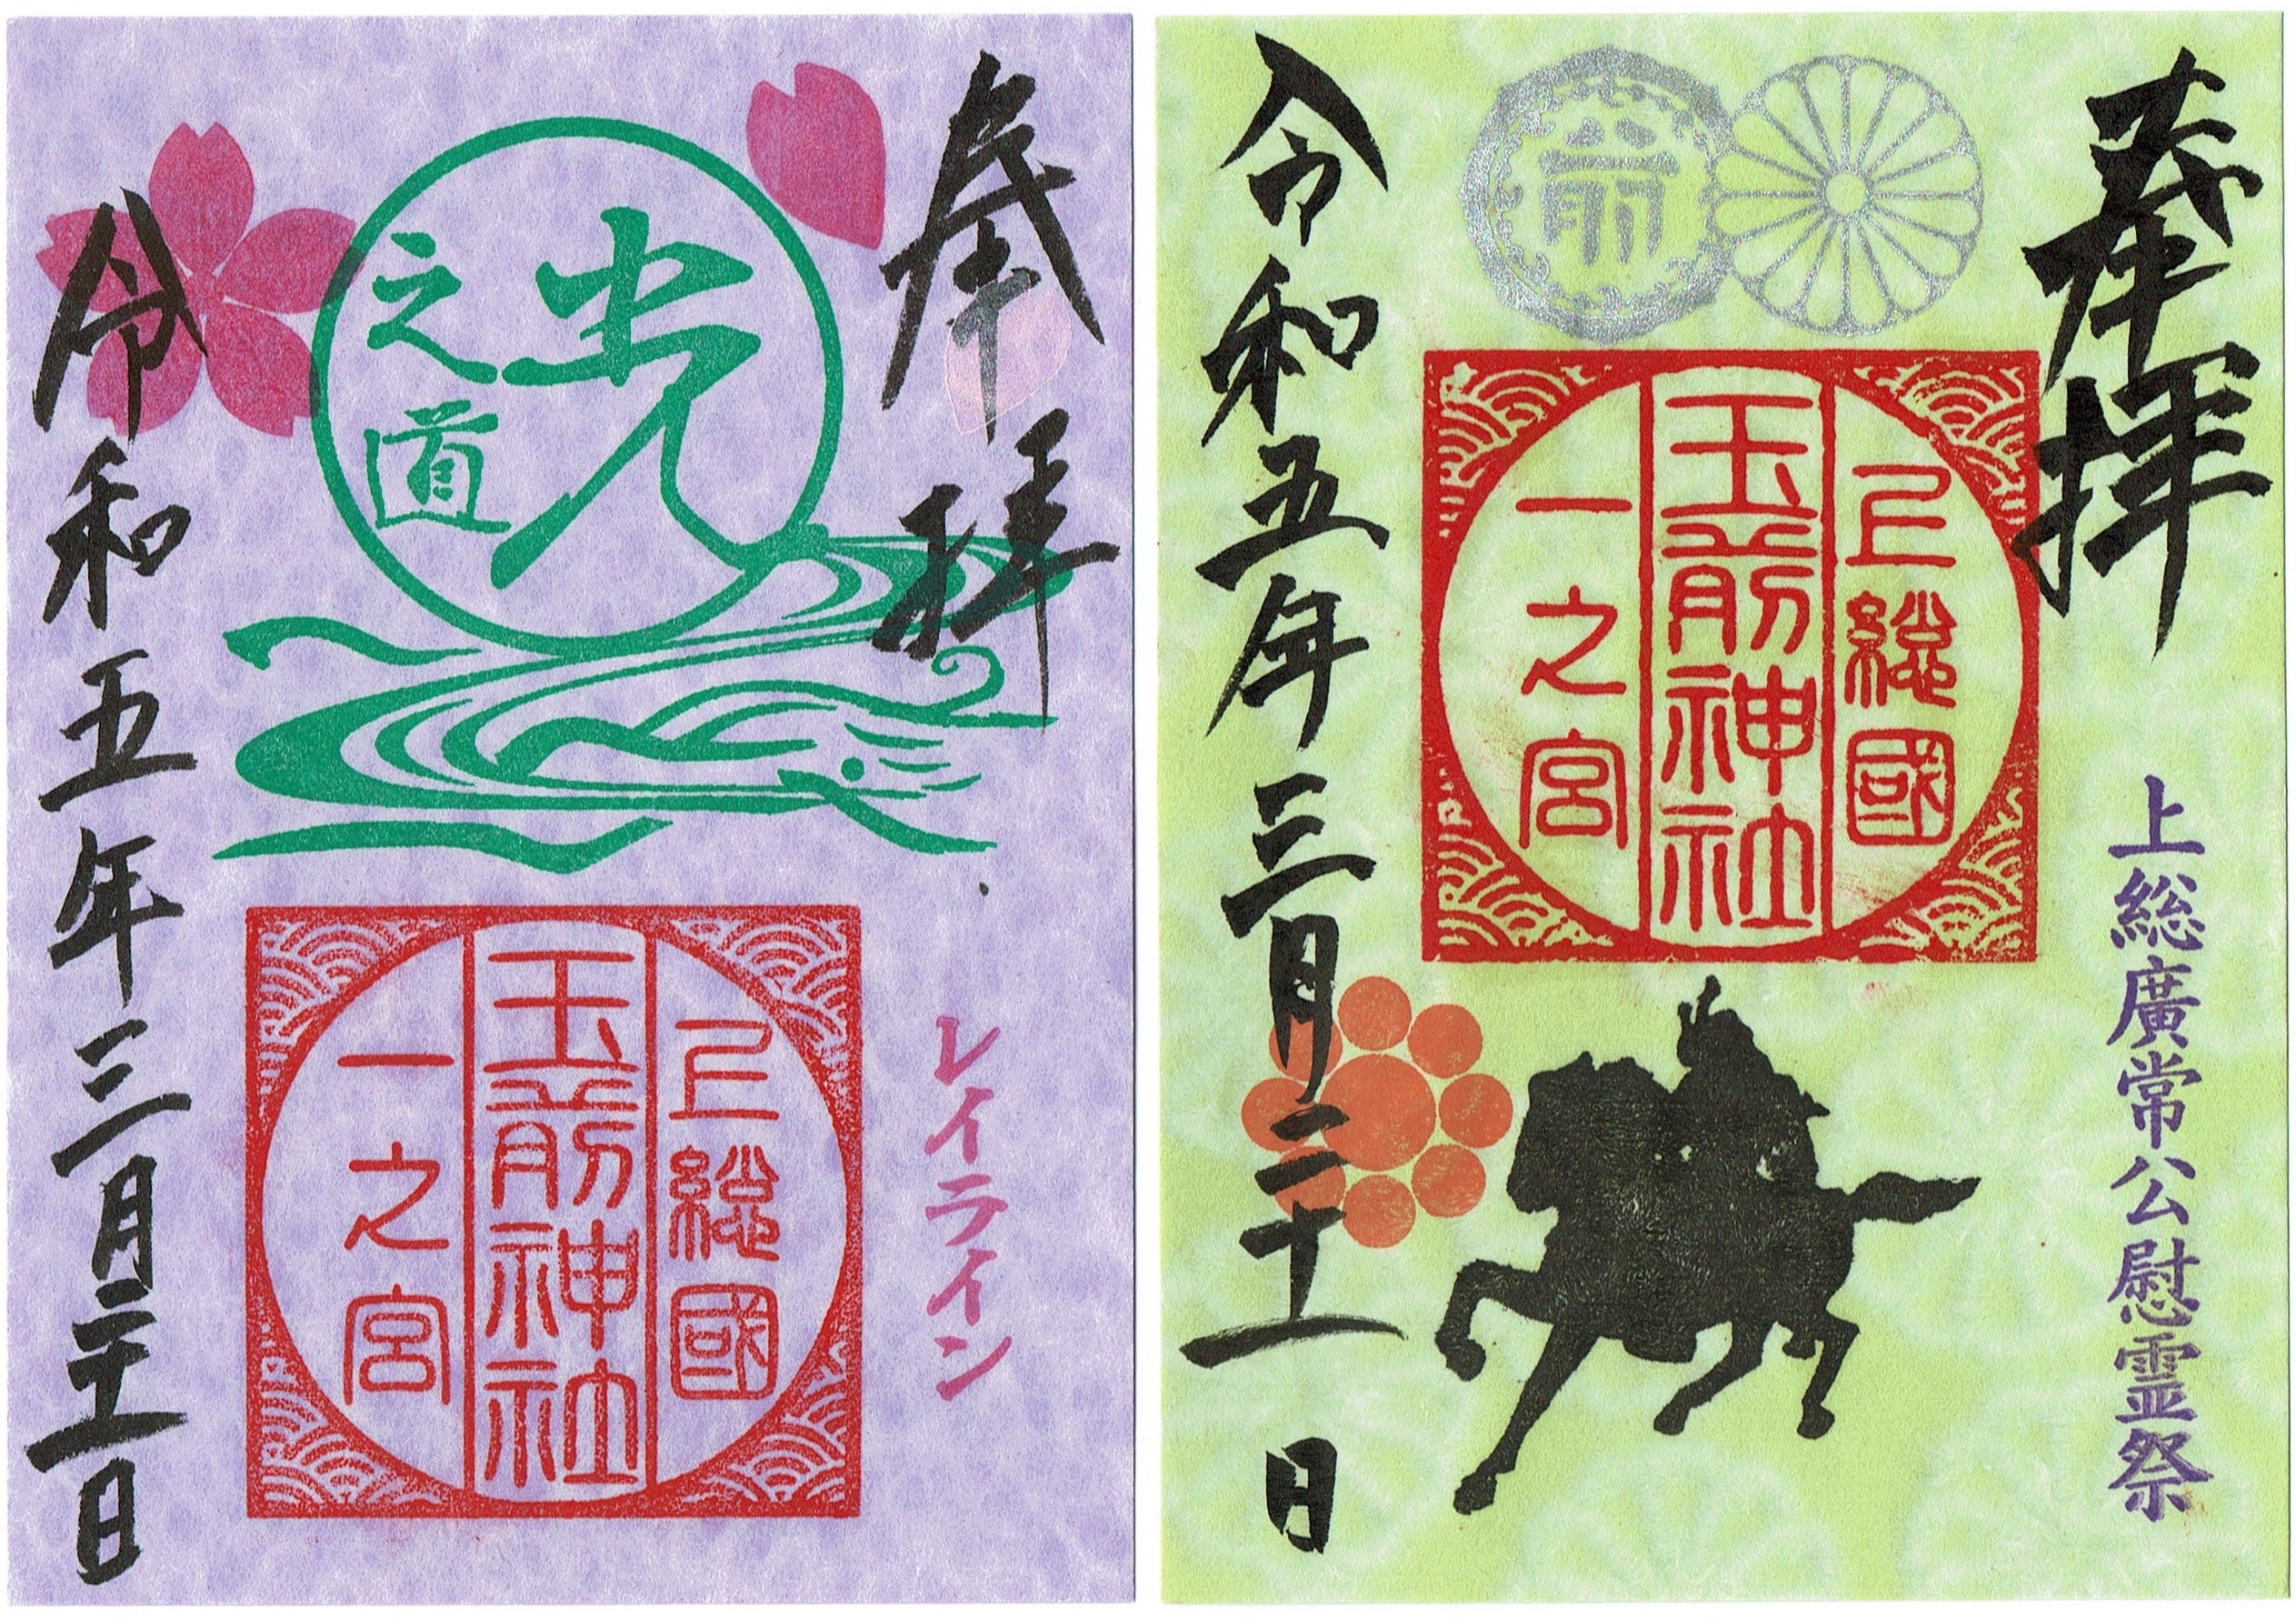 奉拝
レイライン
光
之道
上総國
玉前神社
一之宮
令和五年三月二十一日
奉拝
上総廣常公慰霊祭
前
上総國
玉前神社
一之宮
令和五年三月二十一日